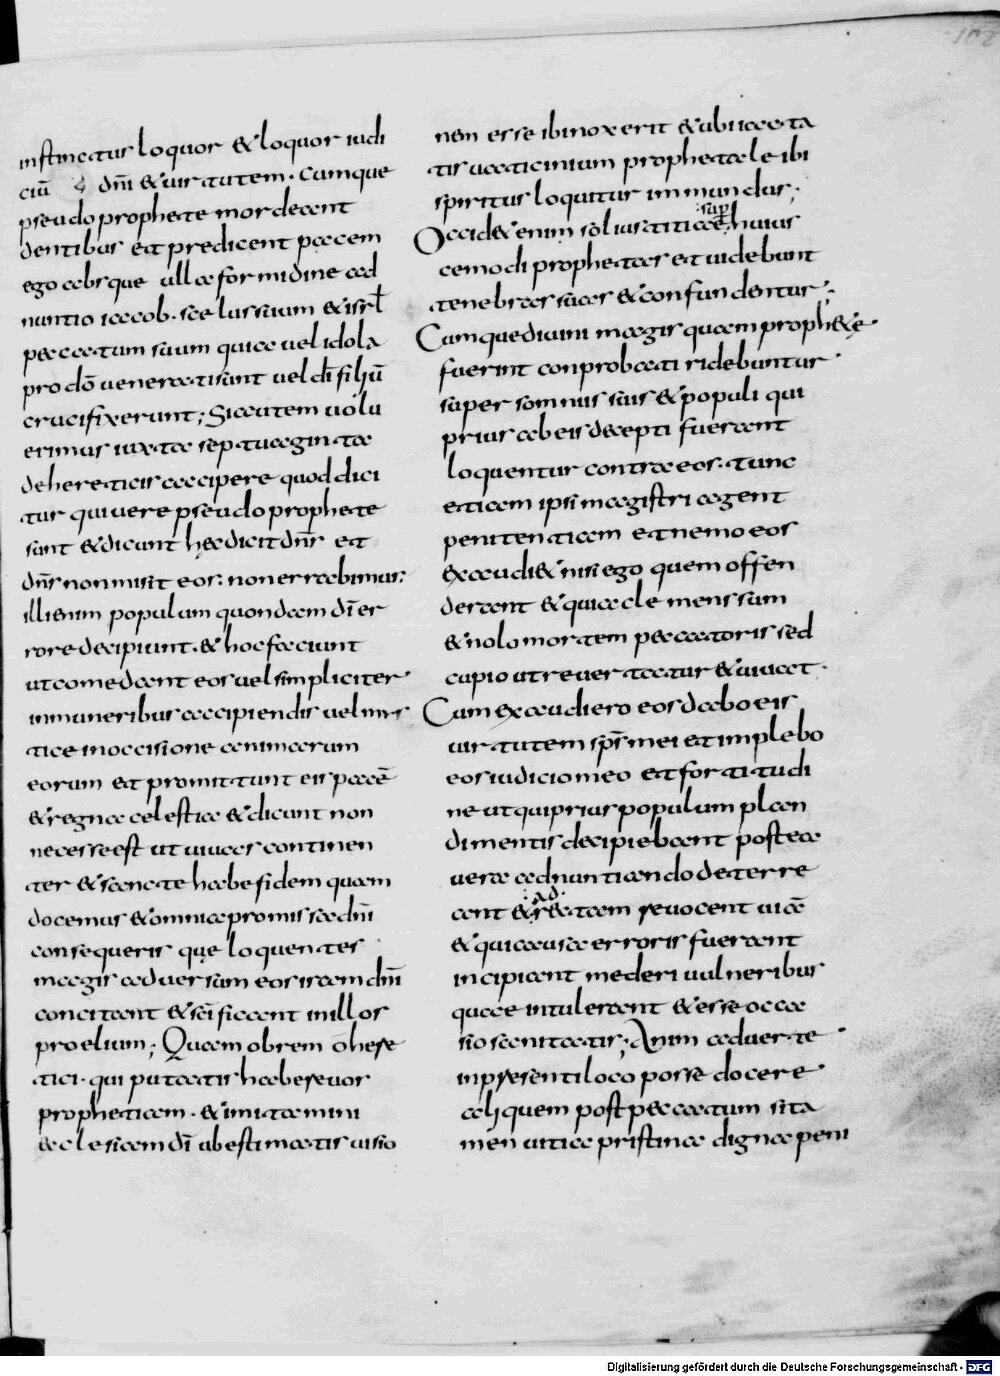 102
instinctus loquor & loquor iudi
ciū dn̄i & uirtutem. cumque
pseudoprophete mordeant
dentibus et predicent pacem
ego absque ulla formidine ad
nuntio iacob. scelus suum & isrl̄
peccatum suum quia uel idola
pro dō uenerati sunt uel dī filiū
crucifixerunt; Si autem uolu
erimus iuxta septuaginta
de hereticis accipere quod dici
tur qui uere pseudoprophete
sunt & dicunt hęc dicit dn̄s et
dn̄s non misit eos: non errabimus;
illi enim populum quondam dī er
rore decipiunt. & hoc faciunt
ut comedant eos uel simpliciter
in muneribus accipiendis uel mys
tice in occisione animarum
eorum et promittunt eis pacē
& regna celestia & dicunt non
necesse est ut uiuas continen
ter & sancte habe fidem quam
docemus & omnia promissa dn̄i
consequeris quę loquentes
magis aduersum eos iram dn̄i
concitant & sc̄ificant in illos
proelium; Quam obrem ō here
tici. qui putatis habere uos
propheticam. & imitamini
ecclesiam dī ubi estimatis uisio
nem esse ibi nox erit & ubi iacta
tis uaticinium prophetale ibi
spiritus loquitur inmundus;
Occid& enim sol iustitiae sup huius
cemodi prophetas et uidebunt
tenebras suas & confundentur;
Cumque diuini magis quam proph&ę
fuerint conprobati ridebuntur
super somnus suis & populi qui
prius ab eis decepti fuerant
loquentur contra eos. tunc
etiam ipsi magistri agent
penitentiam et nemo eos
exaudi& nisi ego quem offen
derant & quia clemens sum
& nolo mortem peccatoris sed
cupio ut reuertatur & uiuat.
Cum exaudiero eos dabo eis
uirtutem sp̄s mei et implebo
eos iudicio meo et fortitudi
ne ut qui prius populum plan
di mentis decipiebant postea
uera adnuntiando deterre
ant & ad r&tam reuocent uiā
& qui causa erroris fuerant
incipiant mederi uulneribus
quae intulerant & esse occa
sio sanitatis; Anim aduerte
in presenti loco posse docere
aliquem post peccatum si ta
men uitia pristina digna peni
Digitalisierung gefördert durch die Deutsche Forschungsgemeinschaft - DFG